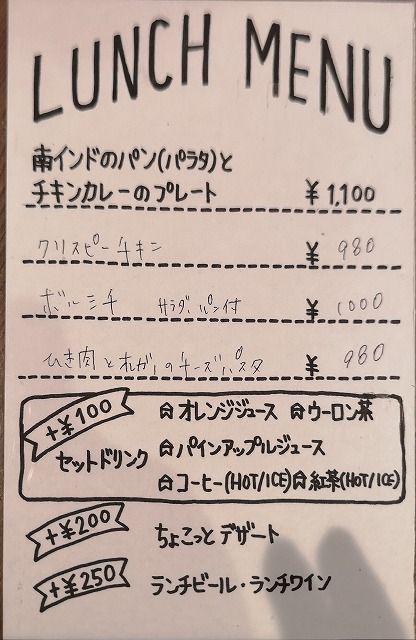 LUNCH MENU
南インドのパン(パラタ)と
チキンカレーのプレート ¥1,100
クリスピーチキン ¥ 980
ボルシチ サラダ、パン付 ¥ 1000
ひき肉と のチーズパスタ ¥ 980
+¥100 ☆オレンジジュース ☆ウーロン茶
セットドリンク ☆パインアップルジュース
☆コーヒー(HOT/ICE)☆紅茶(HOT/ICE)
+¥200 ちょこっとデザート
+¥250 ランチビール・ランチワイン